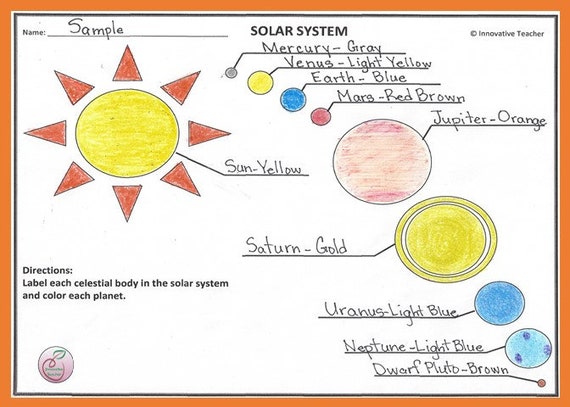 Name: Sample
SOLAR SYSTEM
© Innovative Teacher
Mercury- Gray
Venus - Light Yellow
Earth - Blue
Mars-Red Brown
Jupiter-Orange
Sun-Yellow
Saturn - Gold
Directions:
Label each celestial body in the solar system
and color each planet.
Uranus-Light Blue
Neptune-Light Blue
Dwarf Pluto-Brown
Innovative
Teacher